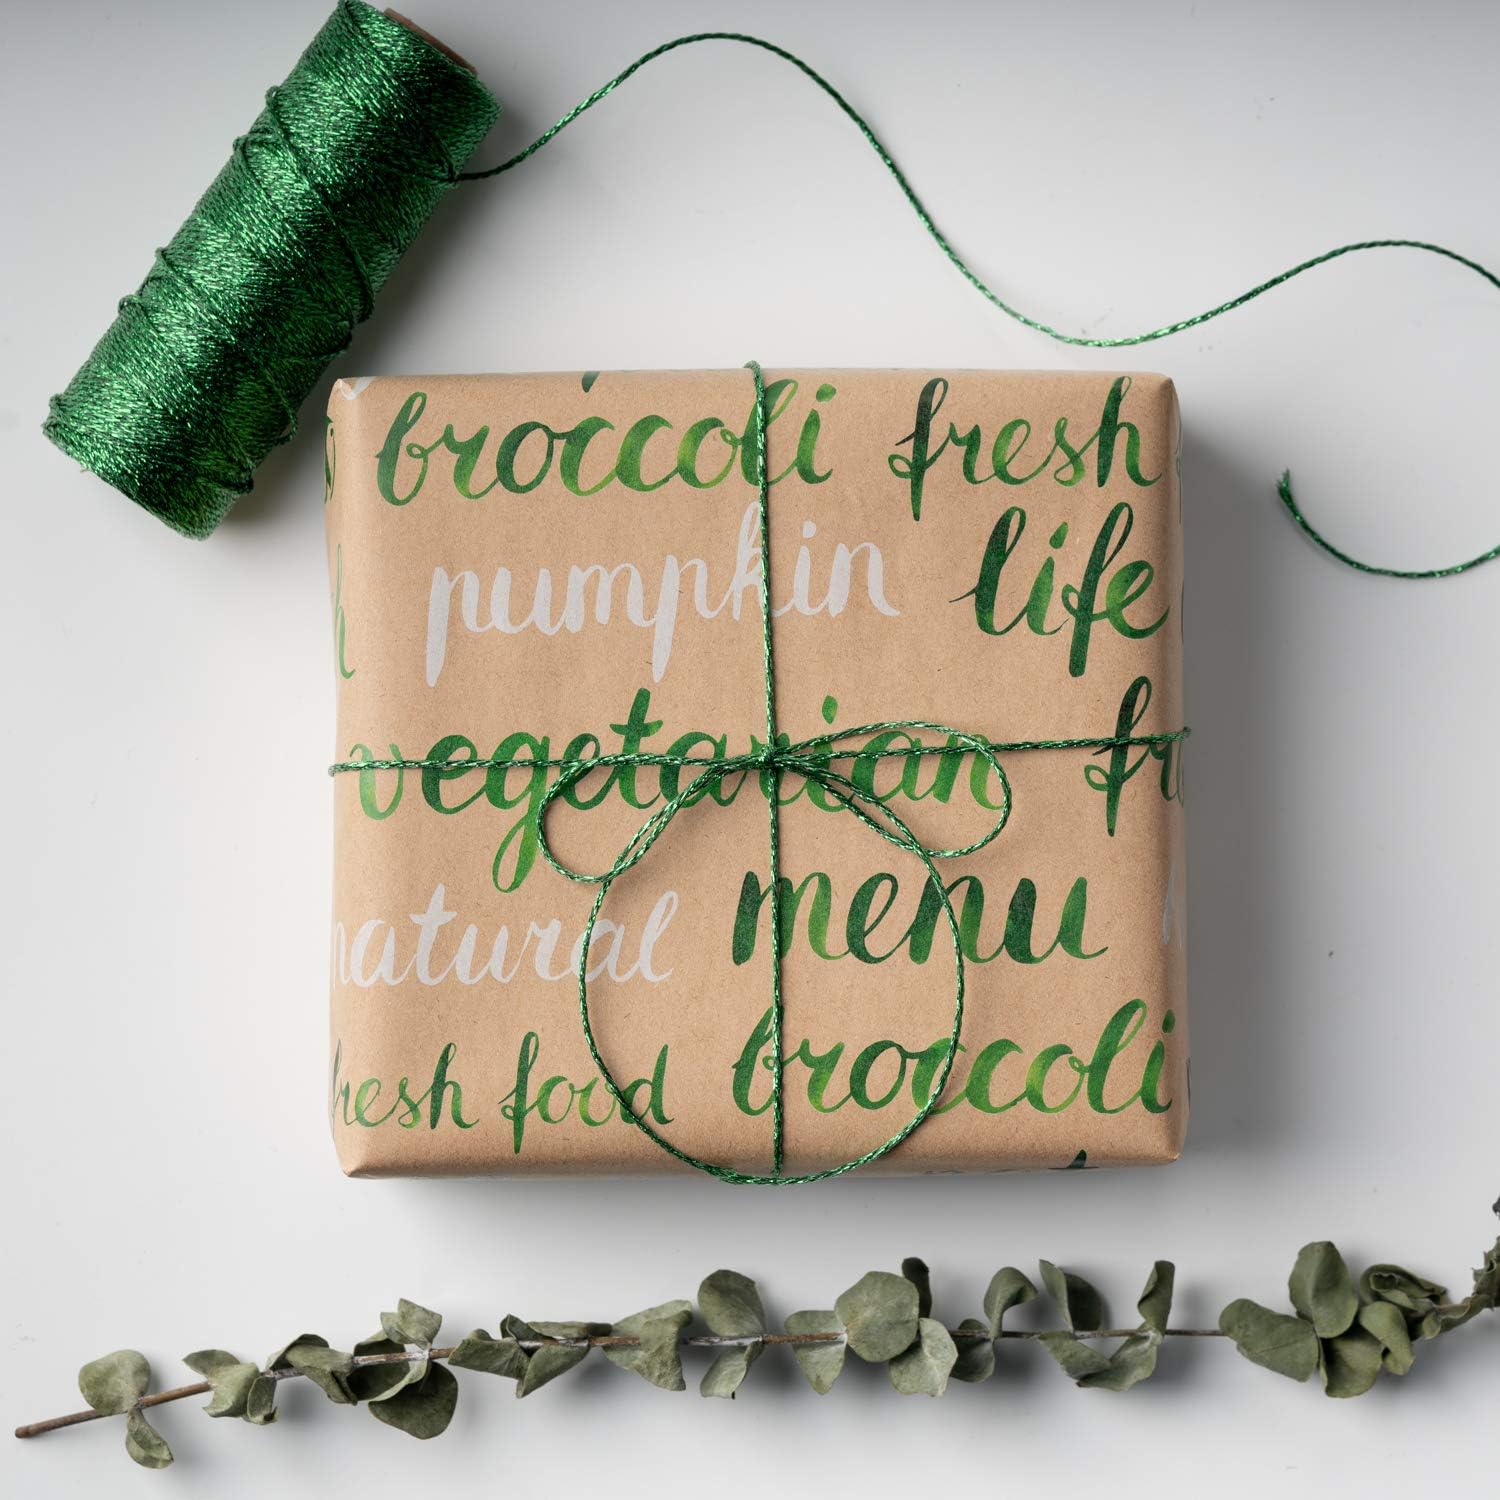 broccoli fresh
pumpkin life
vegetarian
natural menu
fresh food broccoli